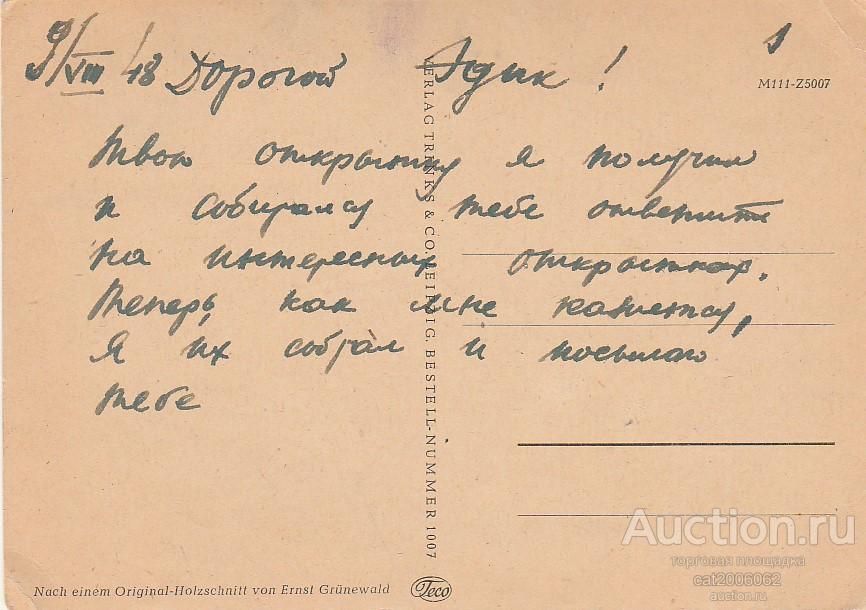 9/VIII 48 Дорогой Эдик!
1
M111-Z5007
Твою открытку я получил
и собирался тебе ответить
на интересных открытках.
Теперь, как мне кажется,
я их собрал и посылаю
тебе
VERLAG TRINKS & CO. LEIPZIG, BESTELL-NUMMER 1007
Nach einem Original-Holzschnitt von Ernst Grünewald
Teco
Auction.ru
торговая площадка
cat2006062
auction.ru